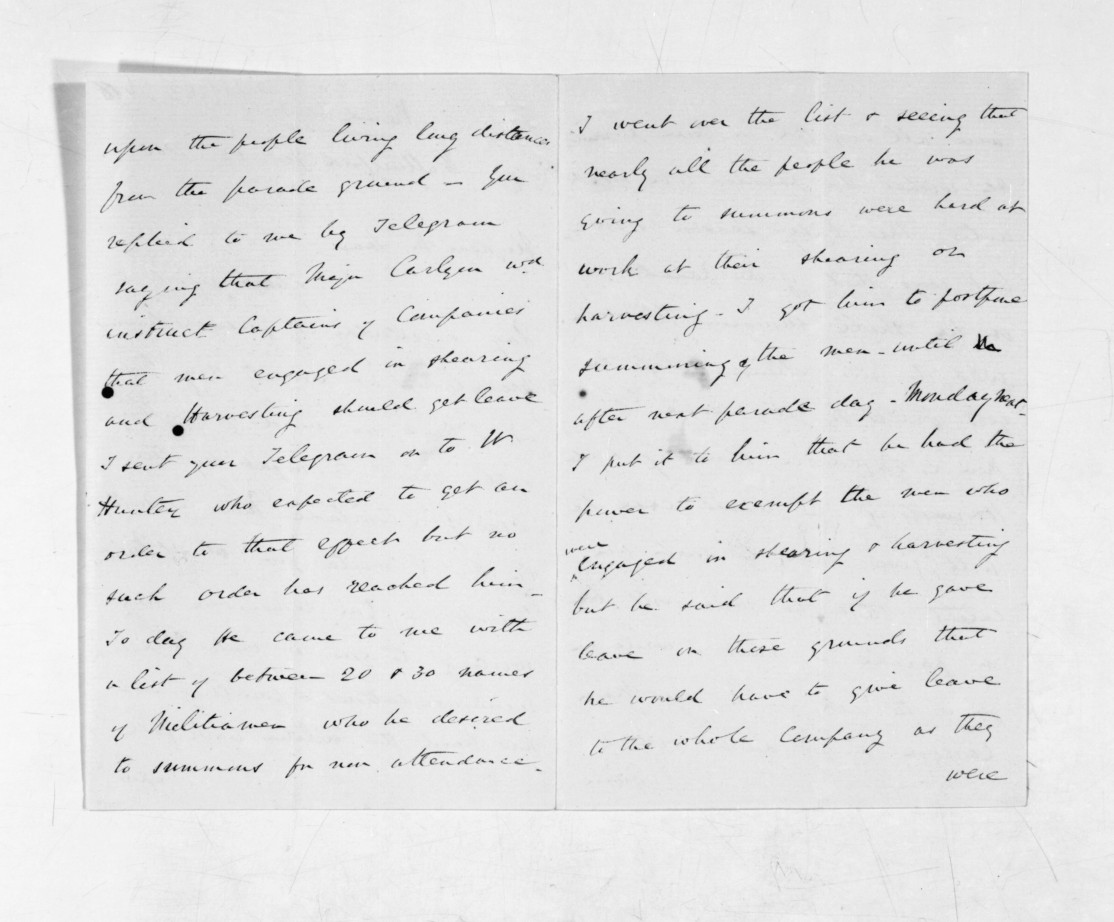 upon the people living long distances
from the parade ground – You
replied to me by Telegram
saying that Major wd
instruct Captains of Companies
that men engaged in shearing
and Harvesting should get leave
I sent your Telegram on to W
Hunter who expected to get an
order to that effect but no
such order has reached him –
To day He came to me with
a list of between 20 & 30 names
of Militiamen who he desired
to summons for non attendance –
I went over the list & seeing that
nearly all the people he was
going to summons were hard at
work at their shearing or
harvesting – I got him to postpone
summoning of the men – until
after next parade day – Monday next –
I put it to him that he had the
power to exempt the men who
were
engaged in shearing & harvesting
but he said that if he gave
leave on those grounds that
he would have to give leave
to the whole Company as they
were